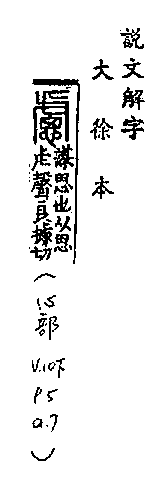 說文解字
大徐本
慮
謀思也从思
虍聲良據切
(心部
V.10下
P5
a.7)